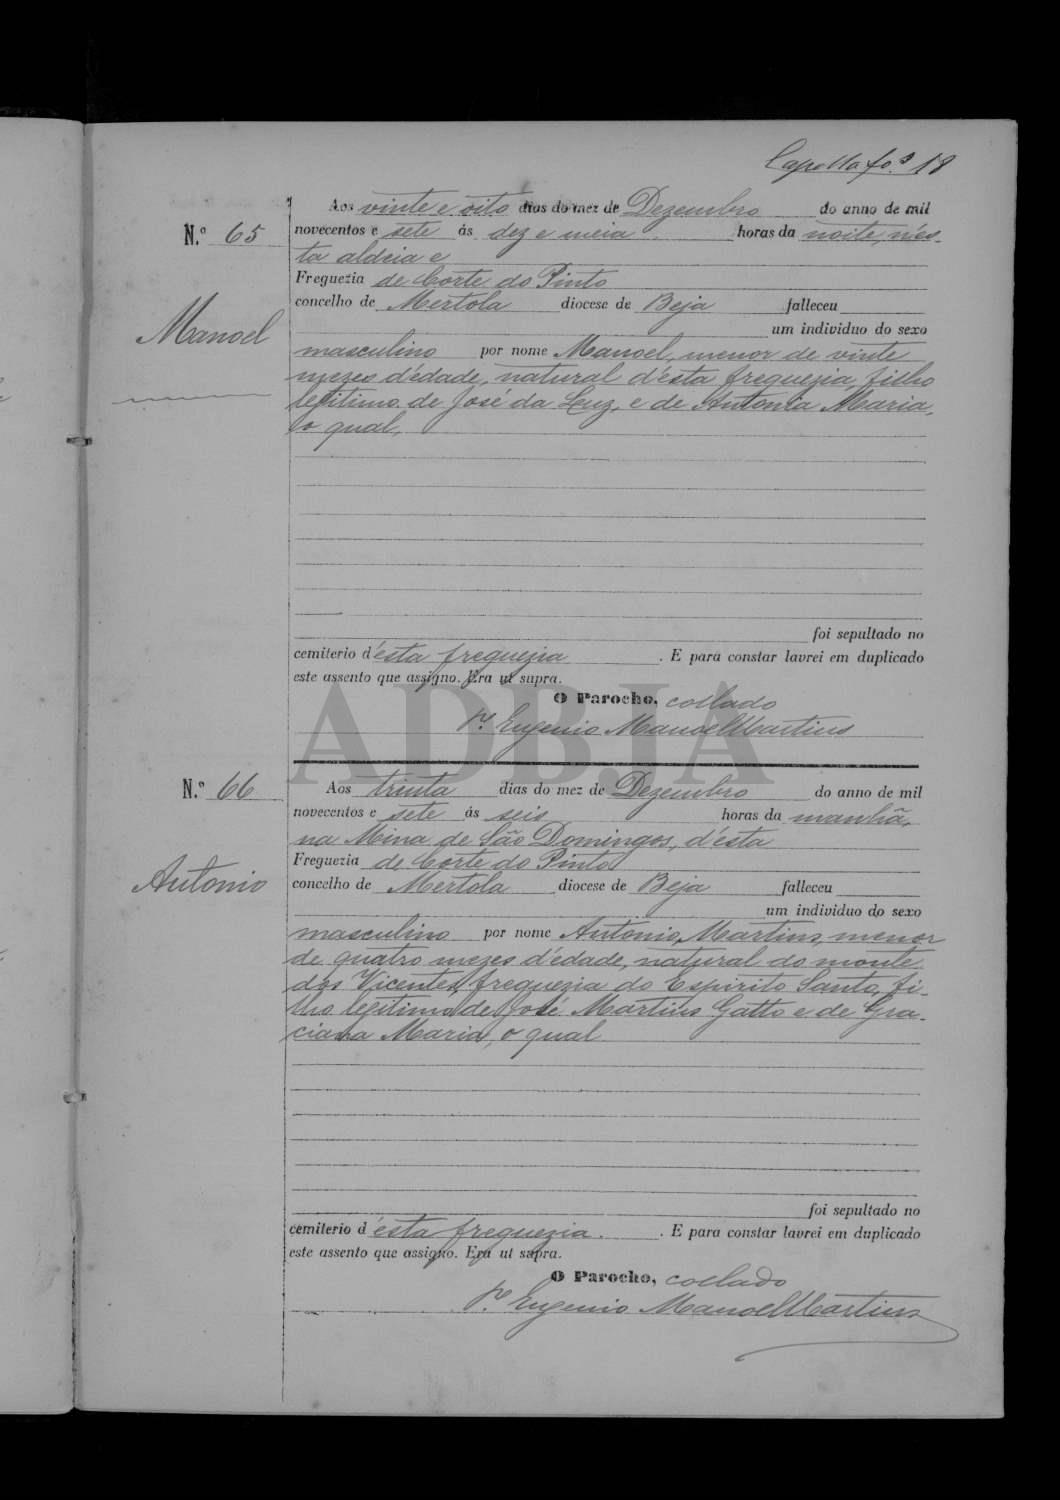 Capella fo.s 18
Aos vinte e oito dias do mez de Dezembro do anno de mil
N.º 65
novecentos e sete ás dez e meia horas da noite, n'es-
ta aldeia e
Freguezia de Corte do Pinto
concelho de Mertola diocese de Beja falleceu
Manoel
um individuo do sexo
masculino por nome Manoel, menor de vinte
mezes d'edade, natural d'esta freguezia, filho
legitimo de José da Luz, e de Antonia Maria,
o qual,
foi sepultado no
cemiterio d'esta freguezia. E para constar lavrei em duplicado
este assento que assigno. Era ut supra.
O Parocho, collado
P.e Eugenio Manoel Martins
ADBJA
N.º 66
Aos trinta dias do mez de Dezembro do anno de mil
novecentos e sete ás seis horas da manhã,
na Mina de São Domingos, d'esta
Freguezia de Corte do Pinto
Antonio
concelho de Mertola diocese de Beja falleceu
um individuo do sexo
masculino por nome Antonio Martins, menor
de quatro mezes d'edade, natural do monte
dos Vicentes, freguezia do Espirito Santo, fi-
lho legitimo de José Martins Gatto e de Gra-
ciana Maria, o qual
foi sepultado no
cemiterio d'esta freguezia. E para constar lavrei em duplicado
este assento que assigno. Era ut supra.
O Parocho, collado
P.e Eugenio Manoel Martins